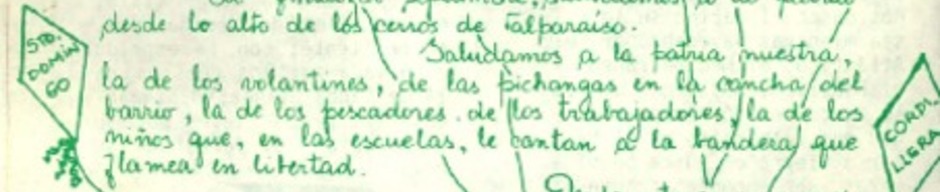 a la
desde lo alto de los cerros de Valparaíso.
Saludamos a la patria nuestra,
la de los volantines, de las pichangas en la cancha del
barrio, la de los pescadores, de los trabajadores, la de los
niños que, en las escuelas, le cantan a la bandera que
flamea en libertad.
STO.
DOMIN
GO
CORDI-
LLERA